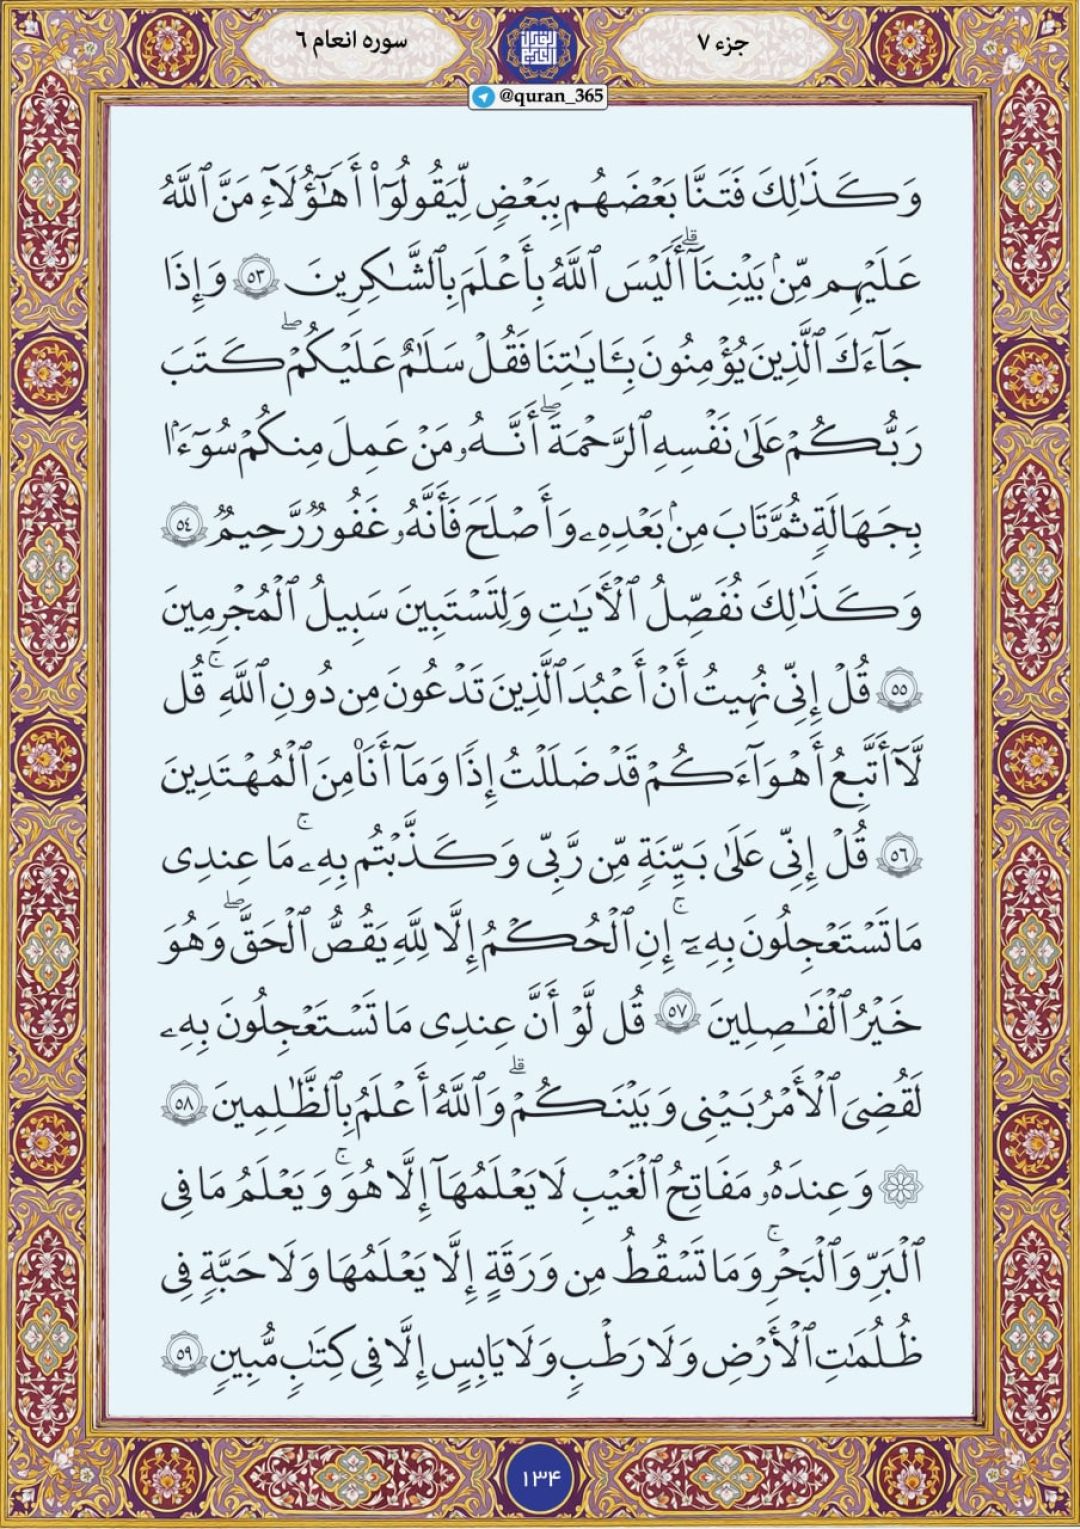 جزء ۷
سوره انعام ۶
@quran_365
وَكَذَٰلِكَ فَتَنَّا بَعْضَهُم بِبَعْضٍ لِّيَقُولُوٓا۟ أَهَٰٓؤُلَآءِ مَنَّ ٱللَّهُ
عَلَيْهِم مِّنۢ بَيْنِنَآ ۗ أَلَيْسَ ٱللَّهُ بِأَعْلَمَ بِٱلشَّٰكِرِينَ ٥٣ وَإِذَا
جَآءَكَ ٱلَّذِينَ يُؤْمِنُونَ بِـَٔايَٰتِنَا فَقُلْ سَلَٰمٌ عَلَيْكُمْ ۖ كَتَبَ
رَبُّكُمْ عَلَىٰ نَفْسِهِ ٱلرَّحْمَةَ ۖ أَنَّهُۥ مَنْ عَمِلَ مِنكُمْ سُوٓءًۢا
بِجَهَالَةٍ ثُمَّ تَابَ مِنۢ بَعْدِهِۦ وَأَصْلَحَ فَأَنَّهُۥ غَفُورٌ رَّحِيمٌ ٥٤
وَكَذَٰلِكَ نُفَصِّلُ ٱلْـَٔايَٰتِ وَلِتَسْتَبِينَ سَبِيلُ ٱلْمُجْرِمِينَ
٥٥ قُلْ إِنِّى نُهِيتُ أَنْ أَعْبُدَ ٱلَّذِينَ تَدْعُونَ مِن دُونِ ٱللَّهِ ۚ قُل
لَّآ أَتَّبِعُ أَهْوَآءَكُمْ قَدْ ضَلَلْتُ إِذًا وَمَآ أَنَا۠ مِنَ ٱلْمُهْتَدِينَ
٥٦ قُلْ إِنِّى عَلَىٰ بَيِّنَةٍ مِّن رَّبِّى وَكَذَّبْتُم بِهِۦ ۚ مَا عِندِى
مَا تَسْتَعْجِلُونَ بِهِۦٓ ۚ إِنِ ٱلْحُكْمُ إِلَّا لِلَّهِ يَقُصُّ ٱلْحَقَّ ۖ وَهُوَ
خَيْرُ ٱلْفَٰصِلِينَ ٥٧ قُل لَّوْ أَنَّ عِندِى مَا تَسْتَعْجِلُونَ بِهِۦ
لَقُضِىَ ٱلْأَمْرُ بَيْنِى وَبَيْنَكُمْ ۗ وَٱللَّهُ أَعْلَمُ بِٱلظَّٰلِمِينَ ٥٨
۞ وَعِندَهُۥ مَفَاتِحُ ٱلْغَيْبِ لَا يَعْلَمُهَآ إِلَّا هُوَ ۚ وَيَعْلَمُ مَا فِى
ٱلْبَرِّ وَٱلْبَحْرِ ۚ وَمَا تَسْقُطُ مِن وَرَقَةٍ إِلَّا يَعْلَمُهَا وَلَا حَبَّةٍ فِى
ظُلُمَٰتِ ٱلْأَرْضِ وَلَا رَطْبٍ وَلَا يَابِسٍ إِلَّا فِى كِتَٰبٍ مُّبِينٍ ٥٩
۱۳۴